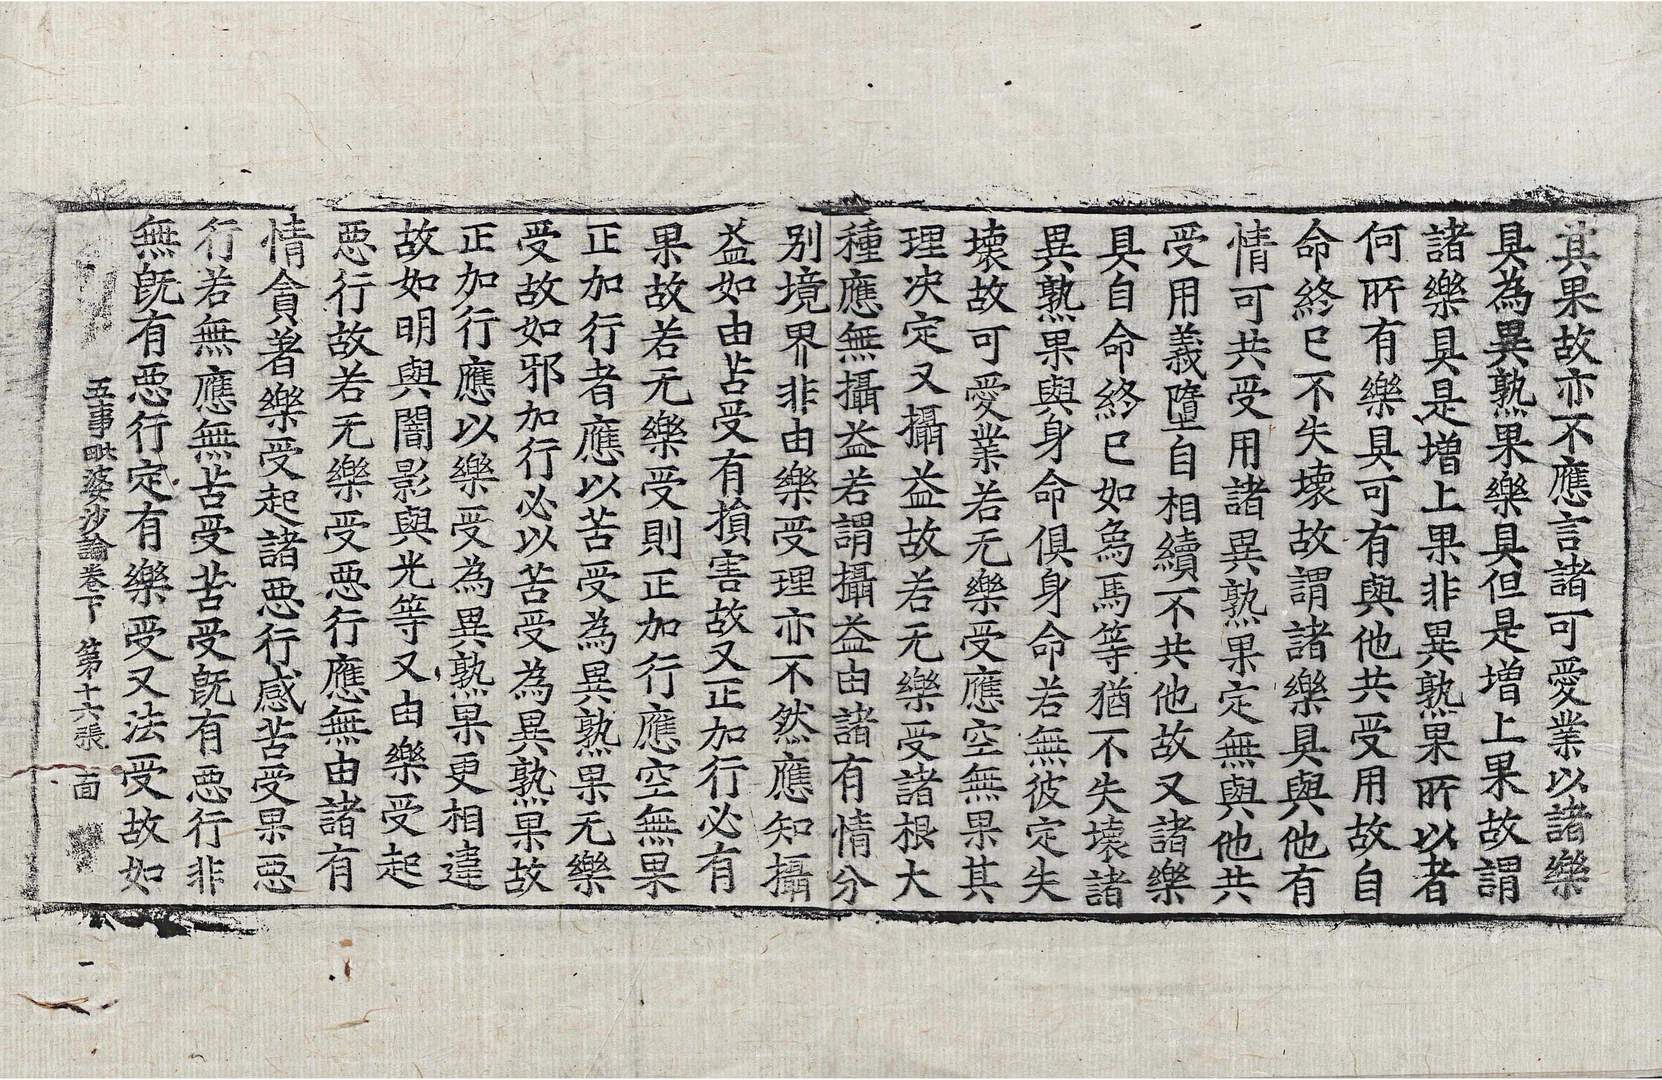 其果故亦不應言諸可愛業以諸樂
具為異熟果樂具但是增上果故謂
諸樂具是增上果非異熟果所以者
何所有樂具可有與他共受用故自
命終已不失壞故謂諸樂具與他有
情可共受用諸異熟果定無與他共
受用義墮自相續不共他故又諸樂
具自命終已如象馬等猶不失壞諸
異熟果與身命俱身命若無彼定失
壞故可愛業若无樂受應空無果其
理决定又攝益故若无樂受諸根大
種應無攝益若謂攝益由諸有情分
別境界非由樂受理亦不然應知攝
益如由苦受有損害故又正加行必有
果故若无樂受則正加行應空無果
正加行者應以苦受為異熟果无樂
受故如邪加行必以苦受為異熟果故
正加行應以樂受為異熟果更相違
故如明與闇影與光等又由樂受起
悪行故若无樂受悪行應無由諸有
情貪著樂受起諸悪行感苦受果悪
行若無應無苦受苦受旣有悪行非
無旣有悪行定有樂受又法受故如
五事毗婆沙論卷下 第十六張 面